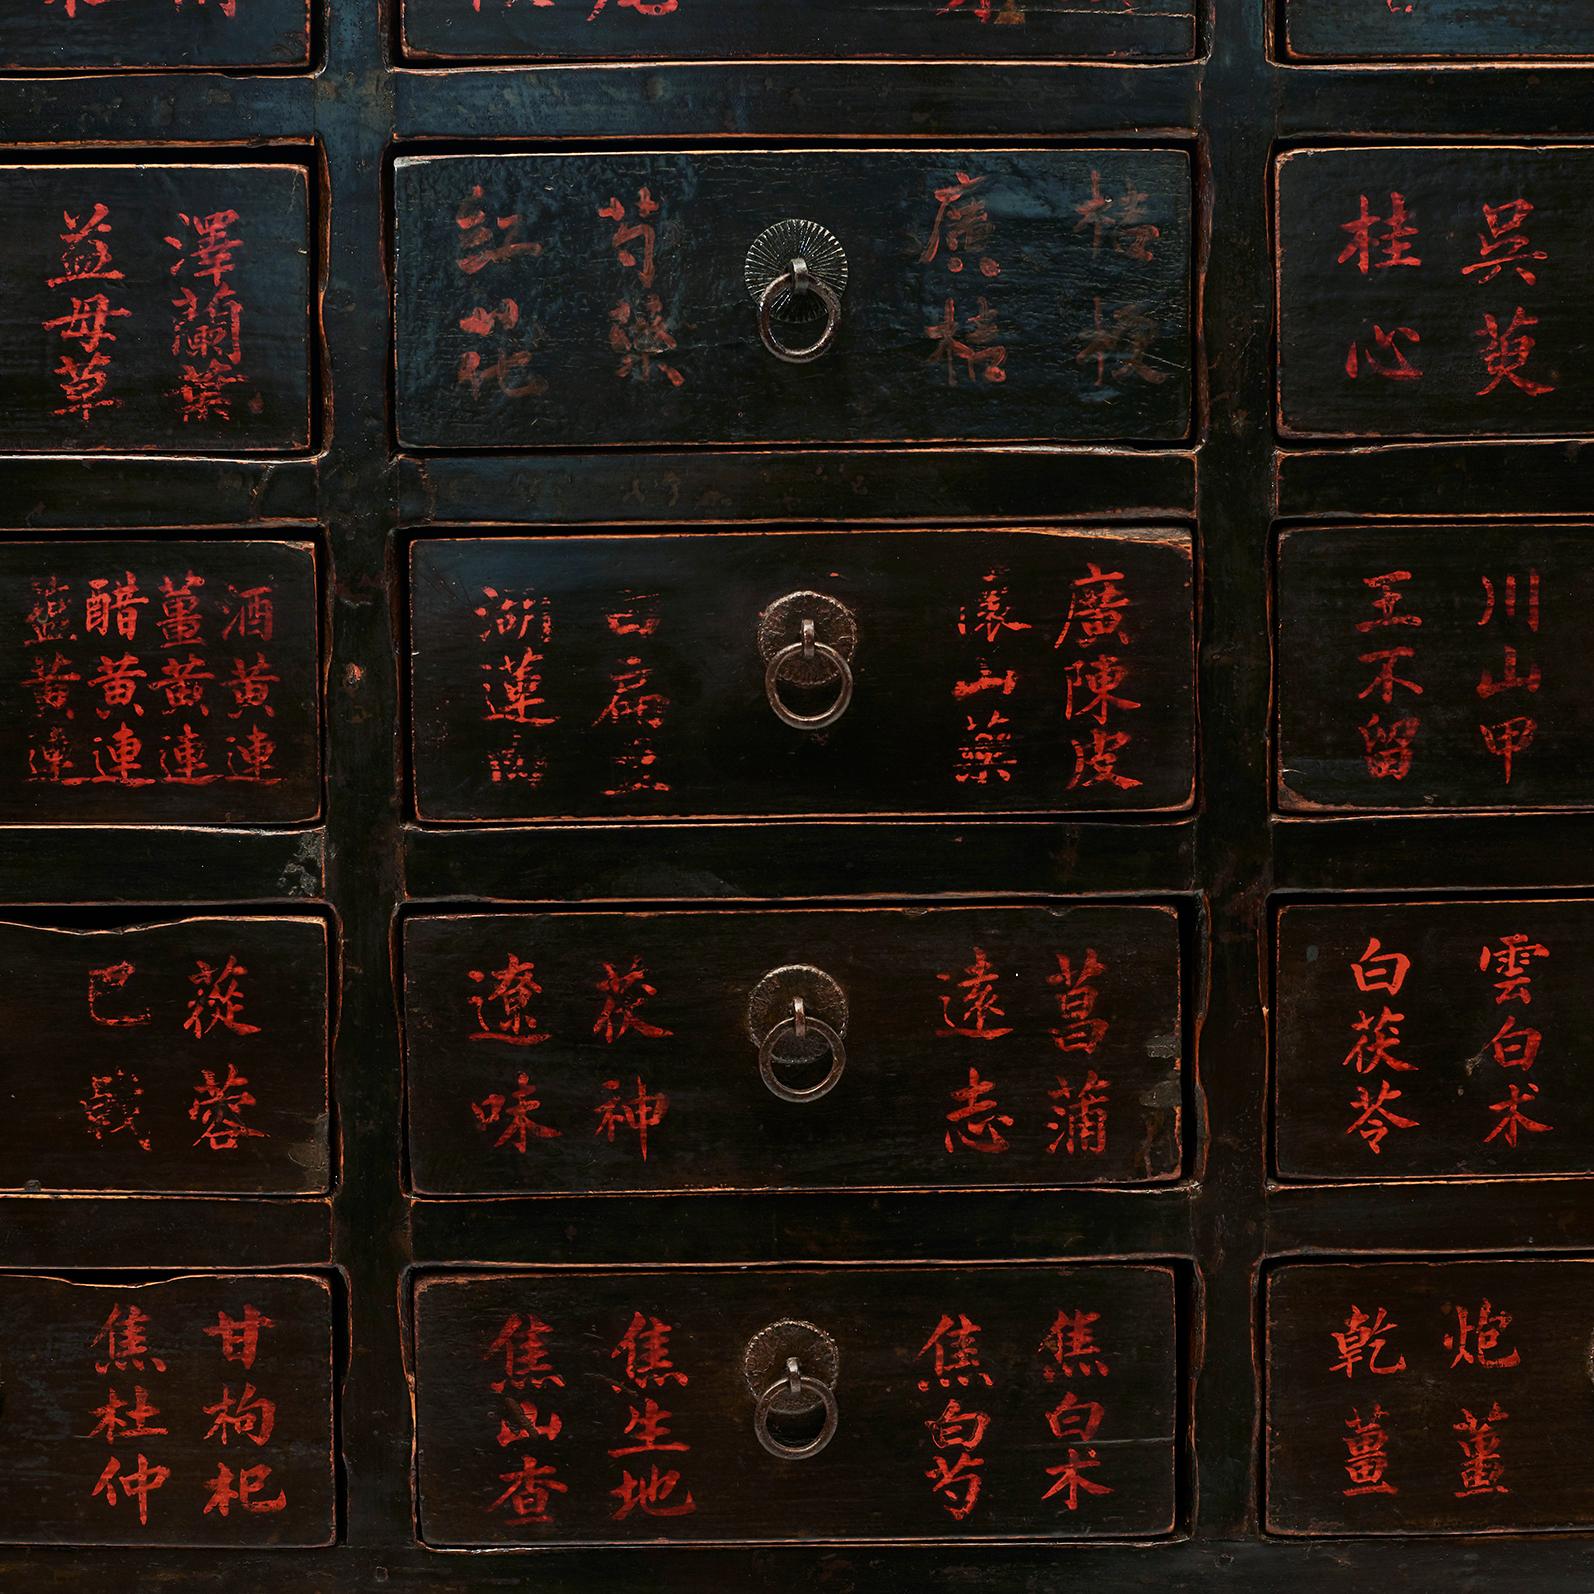 吳萸
桂心
桔梗
廣桔
芍藥
紅花
澤蘭葉
益母草
川山甲
王不留
廣陳皮
懷山藥
湖蓮
酒黃連
薑黃連
醋黃連
鹽黃連
雲白术
白茯苓
菖蒲
遠志
茯神
遼味
蓯蓉
巴戟
炮薑
乾薑
焦白术
焦白芍
焦生地
焦山查
甘枸杞
焦杜仲